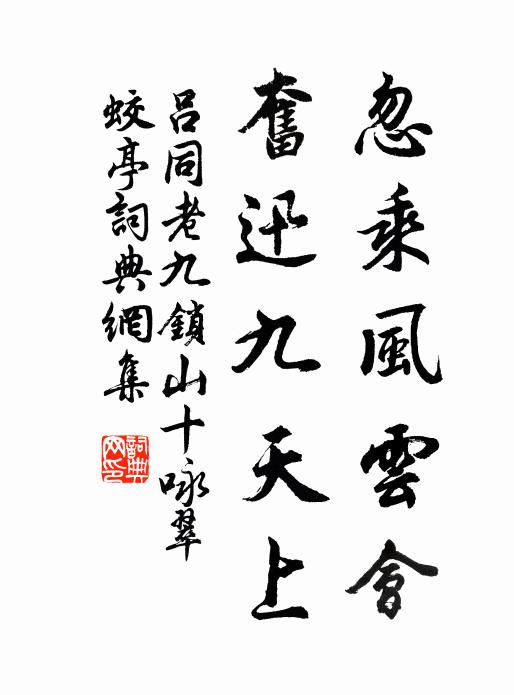 忽乘風雲會
奮迅九天上
呂同老九鎖山十咏翠
蛟亭詞典網集
詞典
网印